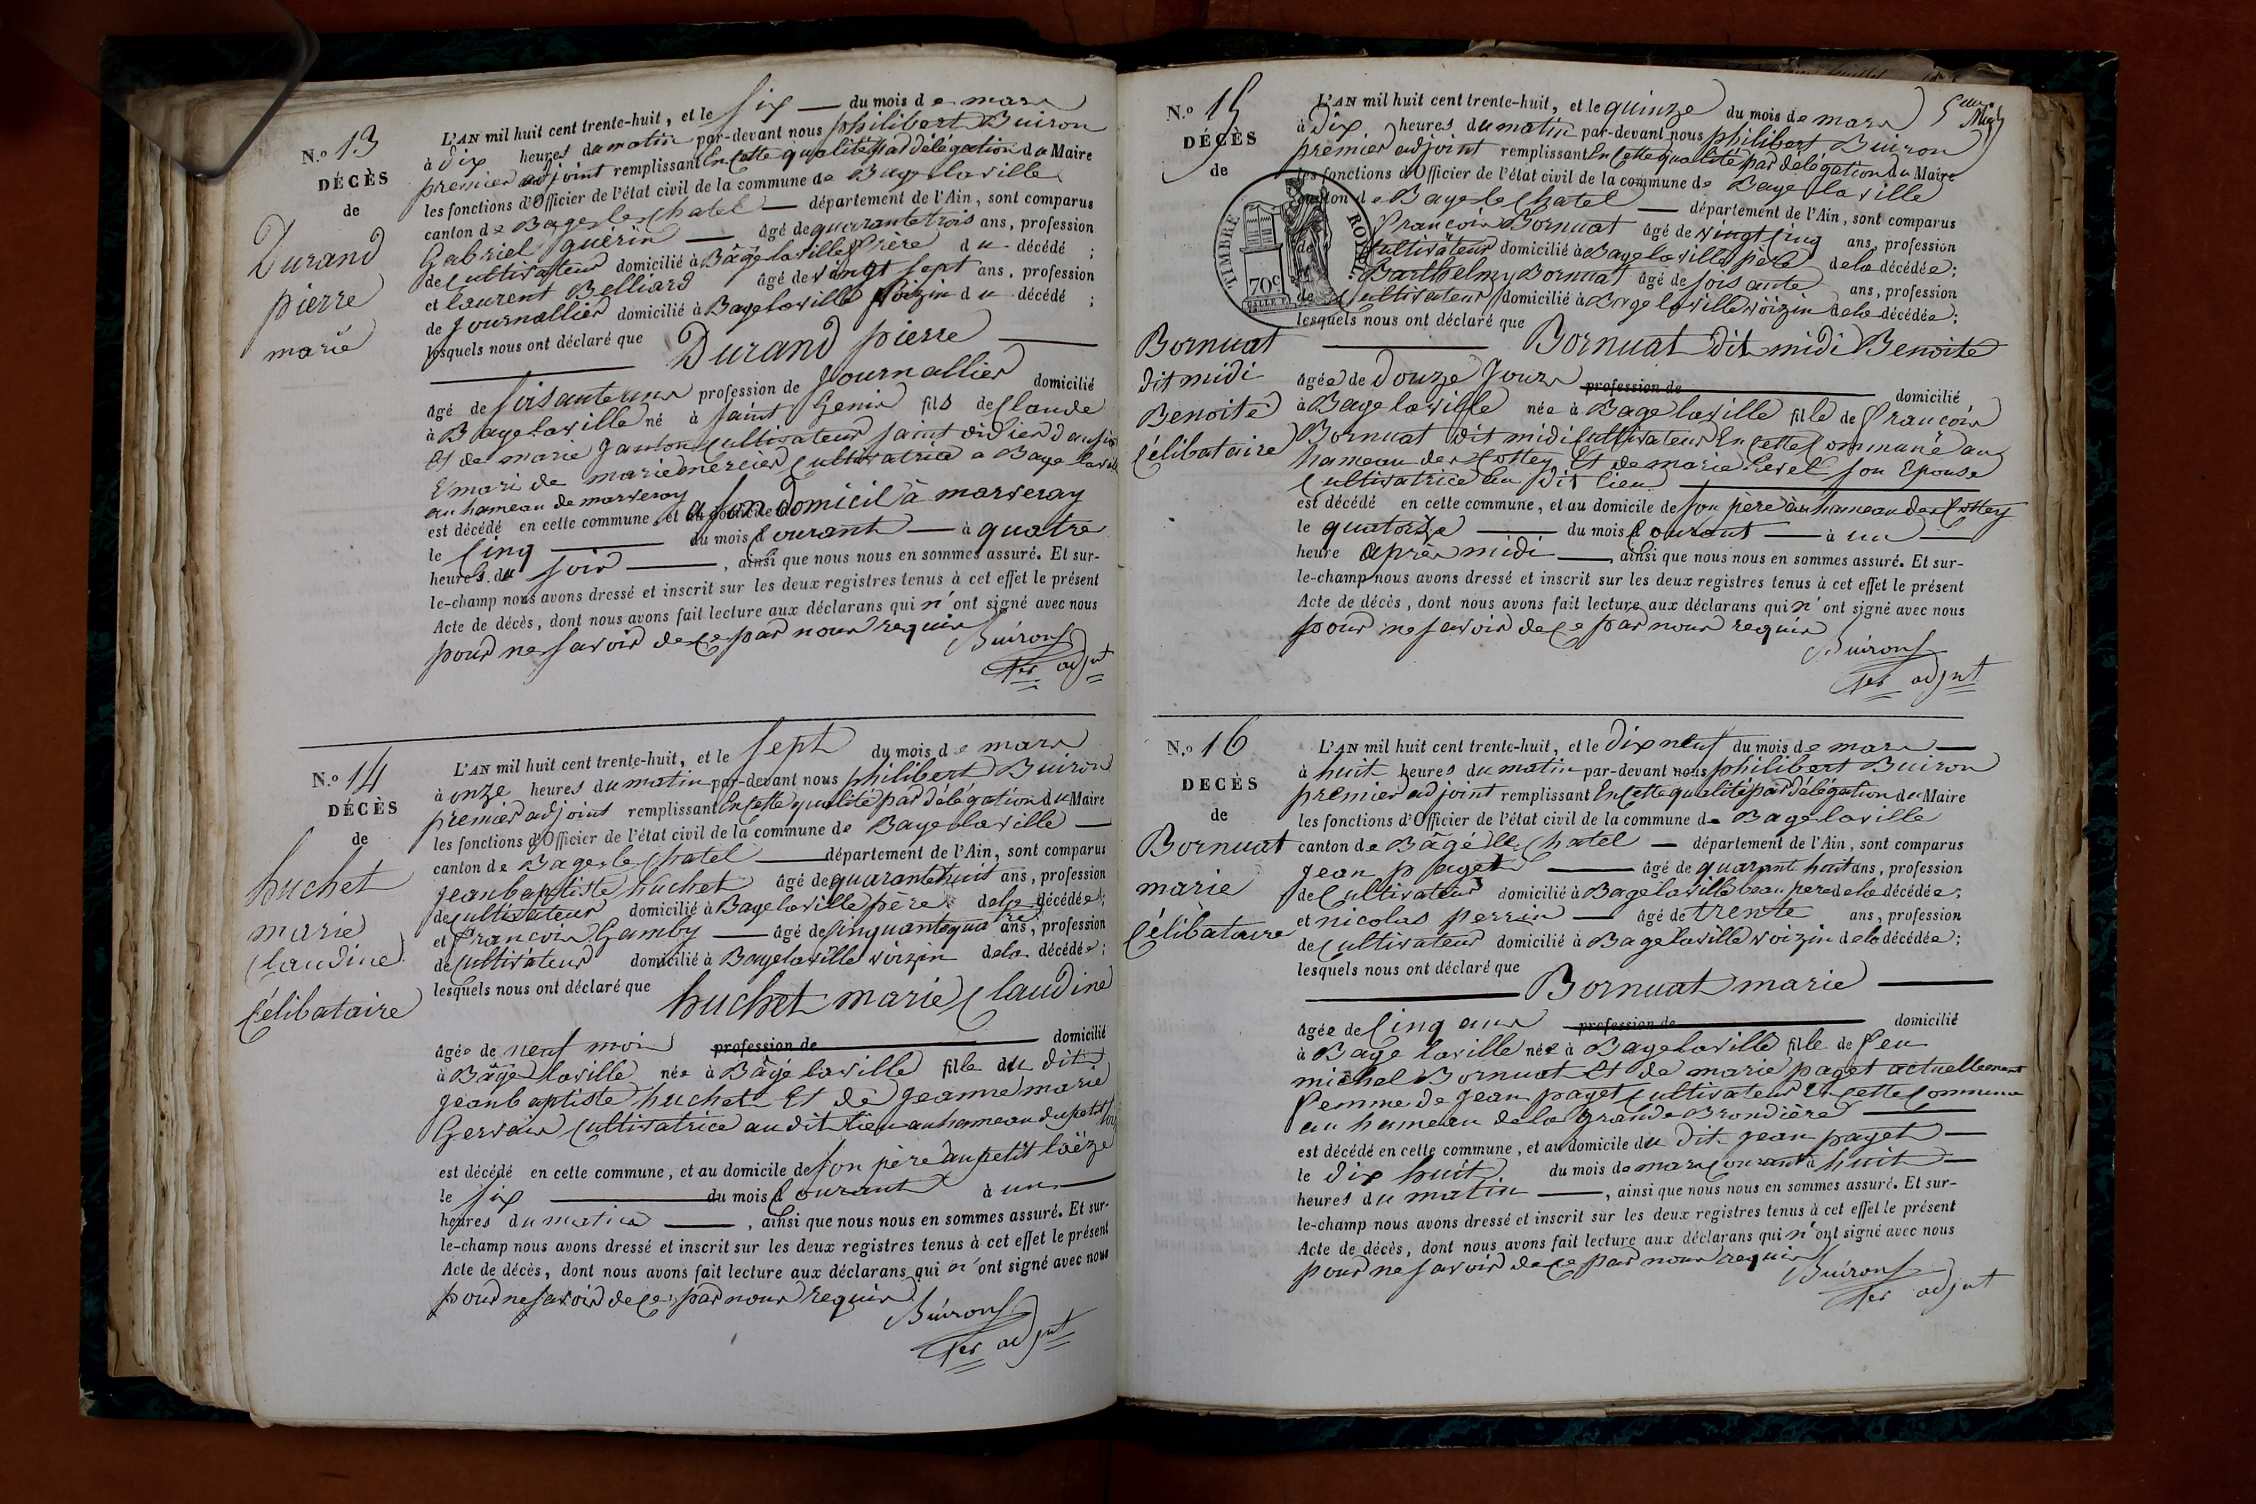 N.º 13
DÉCÈS
de
Durand
pierre
marié
L'AN mil huit cent trente-huit, et le six du mois de mars
à dix heures du matin par-devant nous philibert Buiron
premier adjoint remplissant En cette qualité par délégation du Maire
les fonctions d'Officier de l'état civil de la commune de Bage la ville
canton de Bage le Chatel département de l'Ain, sont comparus
Gabriel guérin âgé de quarante trois ans, profession
de Cultivateur domicilié à Bâgé la ville frère du décédé ;
et laurent Belliard âgé de vingt sept ans, profession
de Journallier domicilié à Bage la ville voizin du décédé ;
lesquels nous ont déclaré que Durand pierre
âgé de soisante un profession de Journallier domicilié
à Bage la ville né à saint Genis fils de Claude
Et de marie Janton Cultivateur saint didier
Et mari de marie mercier Cultivatrice a Bage la ville
au hameau de marveray
est décédé en cette commune, et au domicile de a son domicil à marveray
le Cinq du mois Courant à quatre
heures du soir, ainsi que nous nous en sommes assuré. Et sur-
le-champ nous avons dressé et inscrit sur les deux registres tenus à cet effet le présent
Acte de décès, dont nous avons fait lecture aux déclarans qui n'ont signé avec nous
pour ne savoir de ce par nous requis
Buiron
1er adjnt
N.º 14
DÉCÈS
de
huchet
marie
Claudine
Célibataire
L'AN mil huit cent trente-huit, et le sept du mois de mars
à onze heures du matin par-devant nous philibert Buiron
premier adjoint remplissant En cette qualité par délégation du Maire
les fonctions d'Officier de l'état civil de la commune de Bage la ville
canton de Bage le Chatel département de l'Ain, sont comparus
jean baptiste huchet âgé de quarante huit ans, profession
de Cultivateur domicilié à Bage la ville père de la décédée ;
et francois Gamby âgé de Cinquante quatre ans, profession
de Cultivateur domicilié à Bage la ville voizin de la décédée ;
lesquels nous ont déclaré que huchet marie Claudine
âgée de neuf mois profession de domicilié
à Bâgé la ville née à Bâgé la ville fille du dit
jean baptiste huchet Et de jeanne marie
Gervais Cultivatrice au dit lieu au hameau du petit
est décédé en cette commune, et au domicile de son père au petit loëze
le six du mois Courant à un
heures du matin, ainsi que nous nous en sommes assuré. Et sur-
le-champ nous avons dressé et inscrit sur les deux registres tenus à cet effet le présent
Acte de décès, dont nous avons fait lecture aux déclarans qui n'ont signé avec nous
pour ne savoir de ce par nous requis
Buiron
1er adjnt
N.º 15
DÉCÈS
de
TIMBRE ROYAL
70c
Bornuat
dit midi
Benoite
Célibataire
L'AN mil huit cent trente-huit, et le quinze du mois de mars
à Dix heures du matin par-devant nous philibert Buiron
premier adjoint remplissant En cette qualité par délégation du Maire
les fonctions d'Officier de l'état civil de la commune de Bage la ville
canton de Bage le Chatel département de l'Ain, sont comparus
francois Bornuat âgé de vingt Cinq ans, profession
de Cultivateur domicilié à Bage la ville père de la décédée ;
Barthelmy Bornuat âgé de soisante ans, profession
de Cultivateur domicilié à Bage la ville voizin de la décédée ;
lesquels nous ont déclaré que Bornuat dit midi Benoite
âgée de Douze Jours profession de domicilié
à Bage la ville née à Bage la ville fille de francois
Bornuat dit midi Cultivateur En cette Commune au
hameau des Cottey Et de marie son Epouse
Cultivatrice au dit lieu
est décédé en cette commune, et au domicile de son père au hameau des Cottey
le quatorze du mois Courant à un
heure après midi, ainsi que nous nous en sommes assuré. Et sur-
le-champ nous avons dressé et inscrit sur les deux registres tenus à cet effet le présent
Acte de décès, dont nous avons fait lecture aux déclarans qui n'ont signé avec nous
pour ne savoir de ce par nous requis
Buiron
1er adjnt
N.º 16
DÉCÈS
de
Bornuat
marie
Célibataire
L'AN mil huit cent trente-huit, et le dix neuf du mois de mars
à huit heures du matin par-devant nous philibert Buiron
premier adjoint remplissant En cette qualité par délégation du Maire
les fonctions d'Officier de l'état civil de la commune de Bage la ville
canton de Bâgé le Chatel département de l'Ain, sont comparus
jean paget âgé de quarant huit ans, profession
de Cultivateur domicilié à Bage la ville beau pere de la décédée ;
et nicolas perrin âgé de trente ans, profession
de Cultivateur domicilié à Bage la ville voizin de la décédée ;
lesquels nous ont déclaré que Bornuat marie
âgée de Cinq ans profession de domicilié
à Bage la ville née à Bage la ville fille de feu
michel Bornuat Et de marie paget actuellement
femme de jean paget Cultivateur En cette Commune
au hameau de la grande Brondière
est décédé en cette commune, et au domicile du dit jean paget
le dix huit du mois de mars Courant à huit
heures du matin, ainsi que nous nous en sommes assuré. Et sur-
le-champ nous avons dressé et inscrit sur les deux registres tenus à cet effet le présent
Acte de décès, dont nous avons fait lecture aux déclarans qui n'ont signé avec nous
pour ne savoir de ce par nous requis
Buiron
1er adjnt